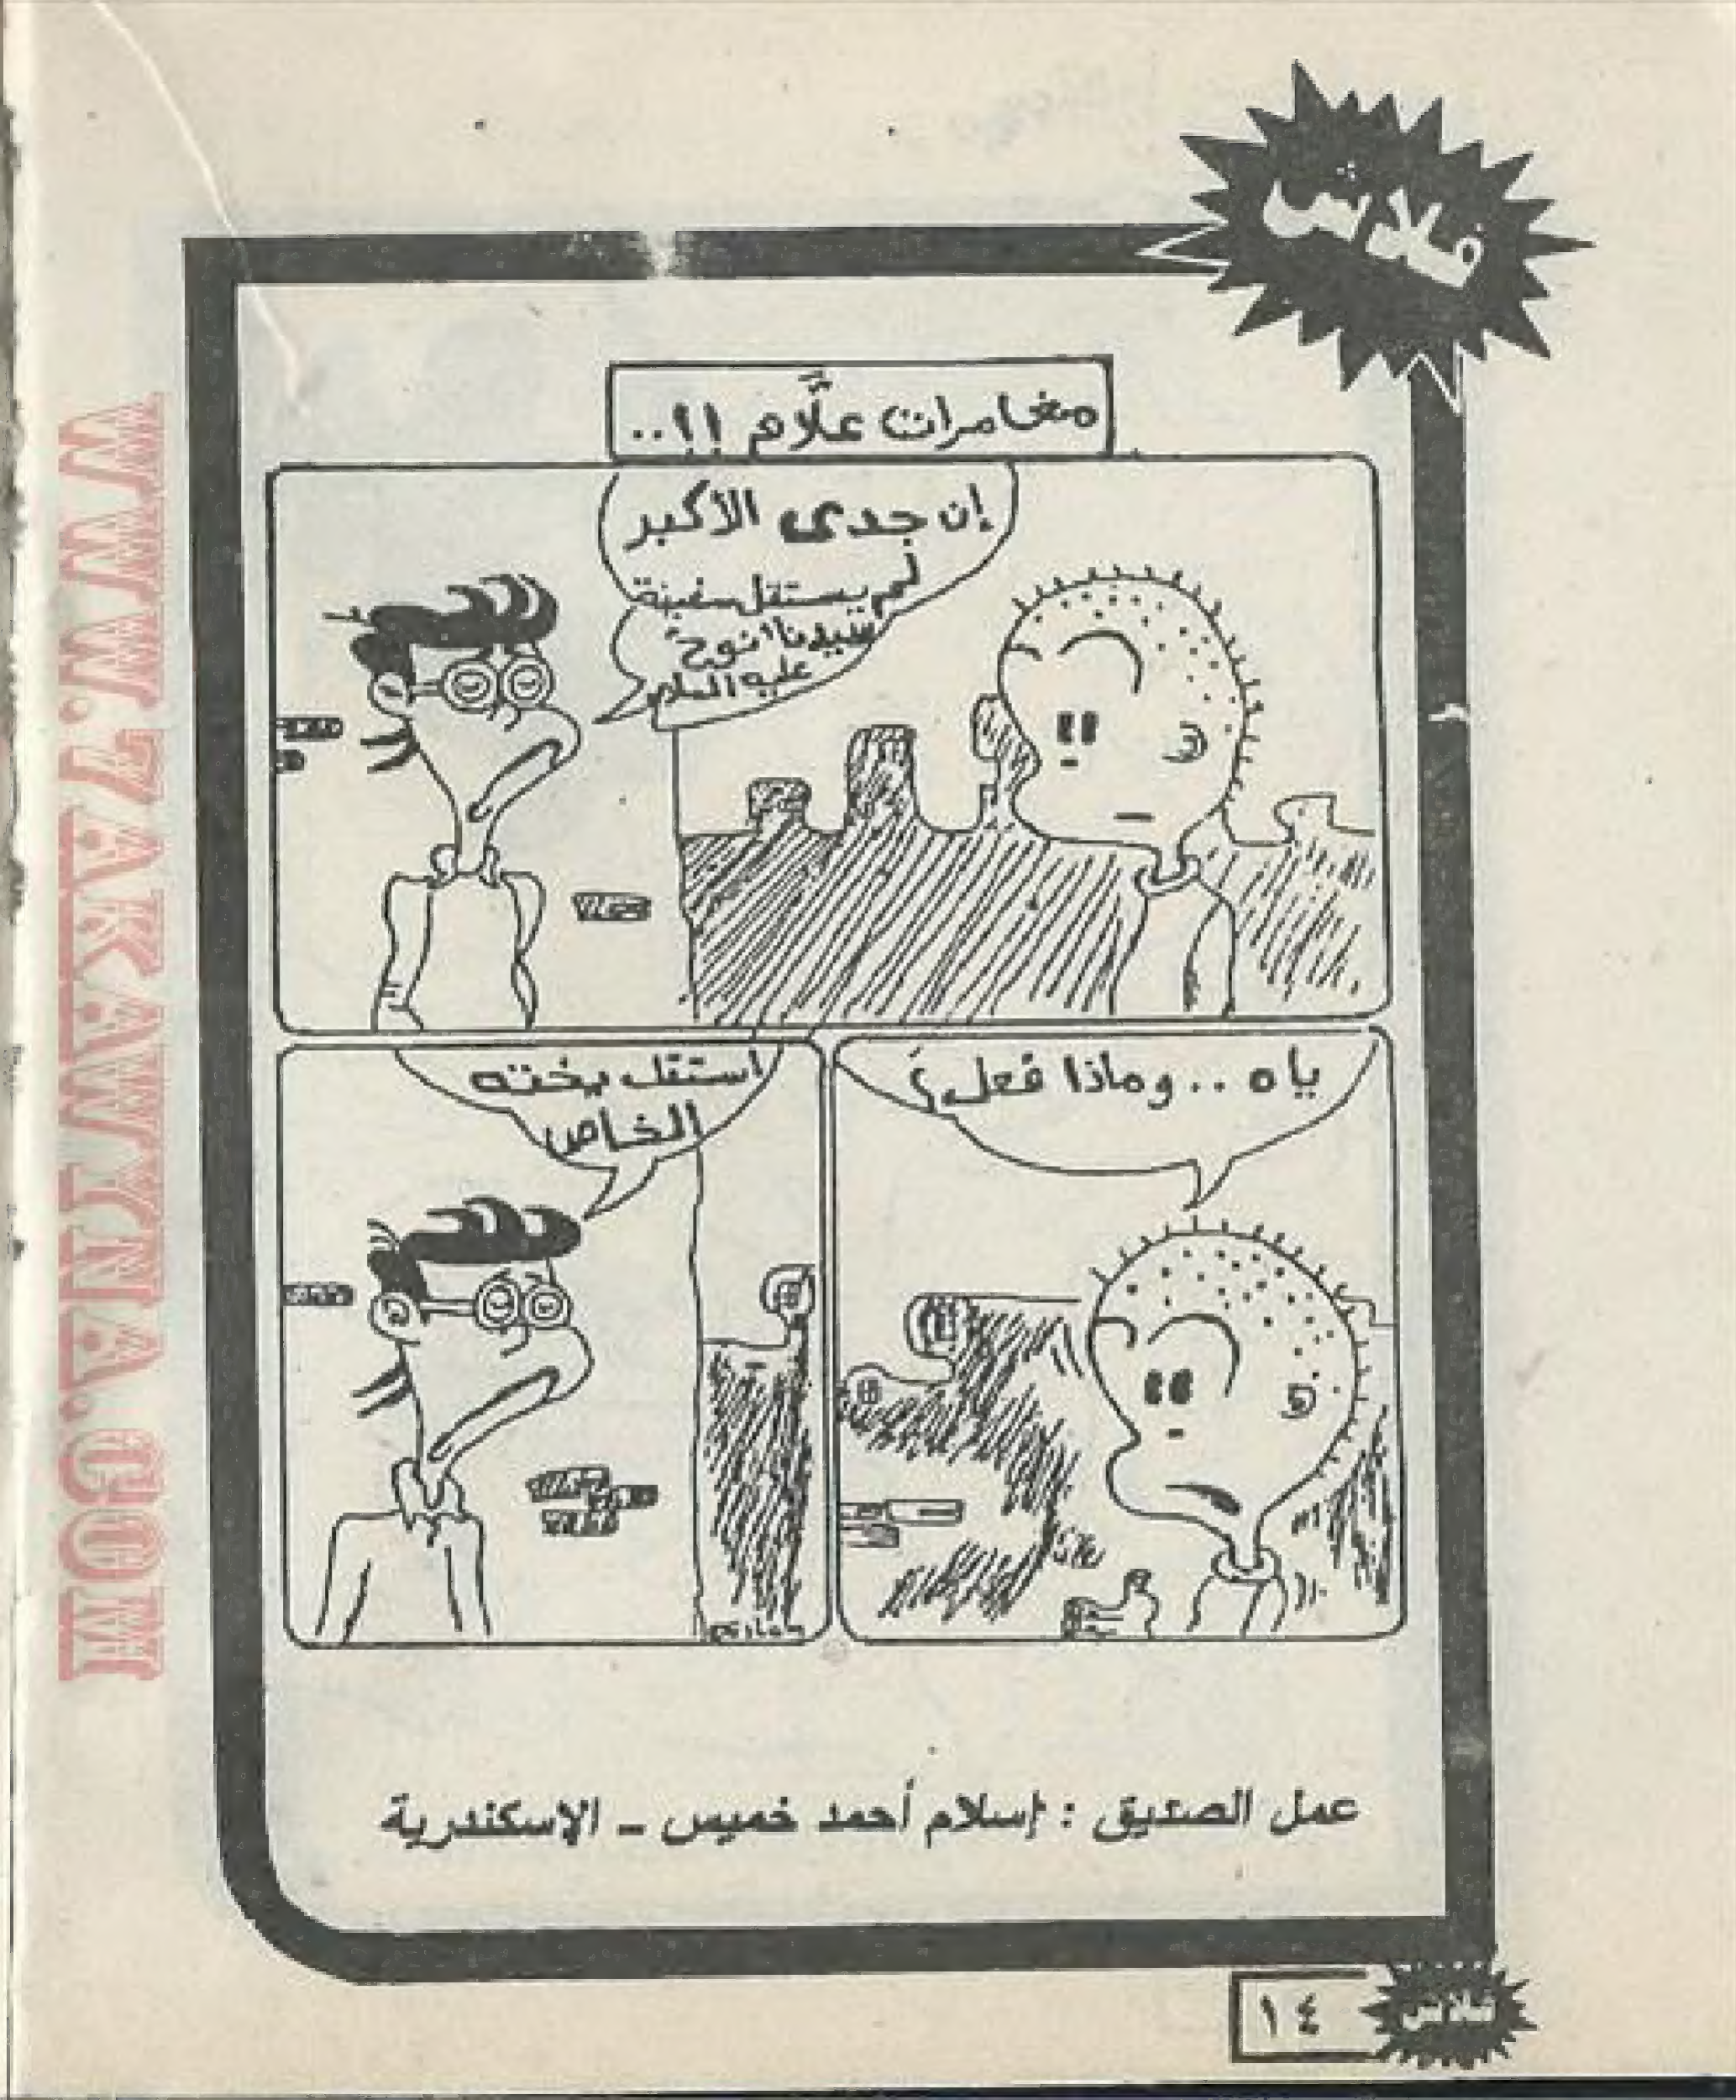 فلاش
مغامرات علَّام !!..
إن جدى الأكبر
لم يستقل سفينة
سيدنا "نوح"
عليه السلام
ياه .. وماذا فعل؟
استقل يخته
الخاص
عمل الصديق : إسلام أحمد خميس ـ الإسكندرية
١٤
فلاش
WWW.ZAKAWYNA.COM